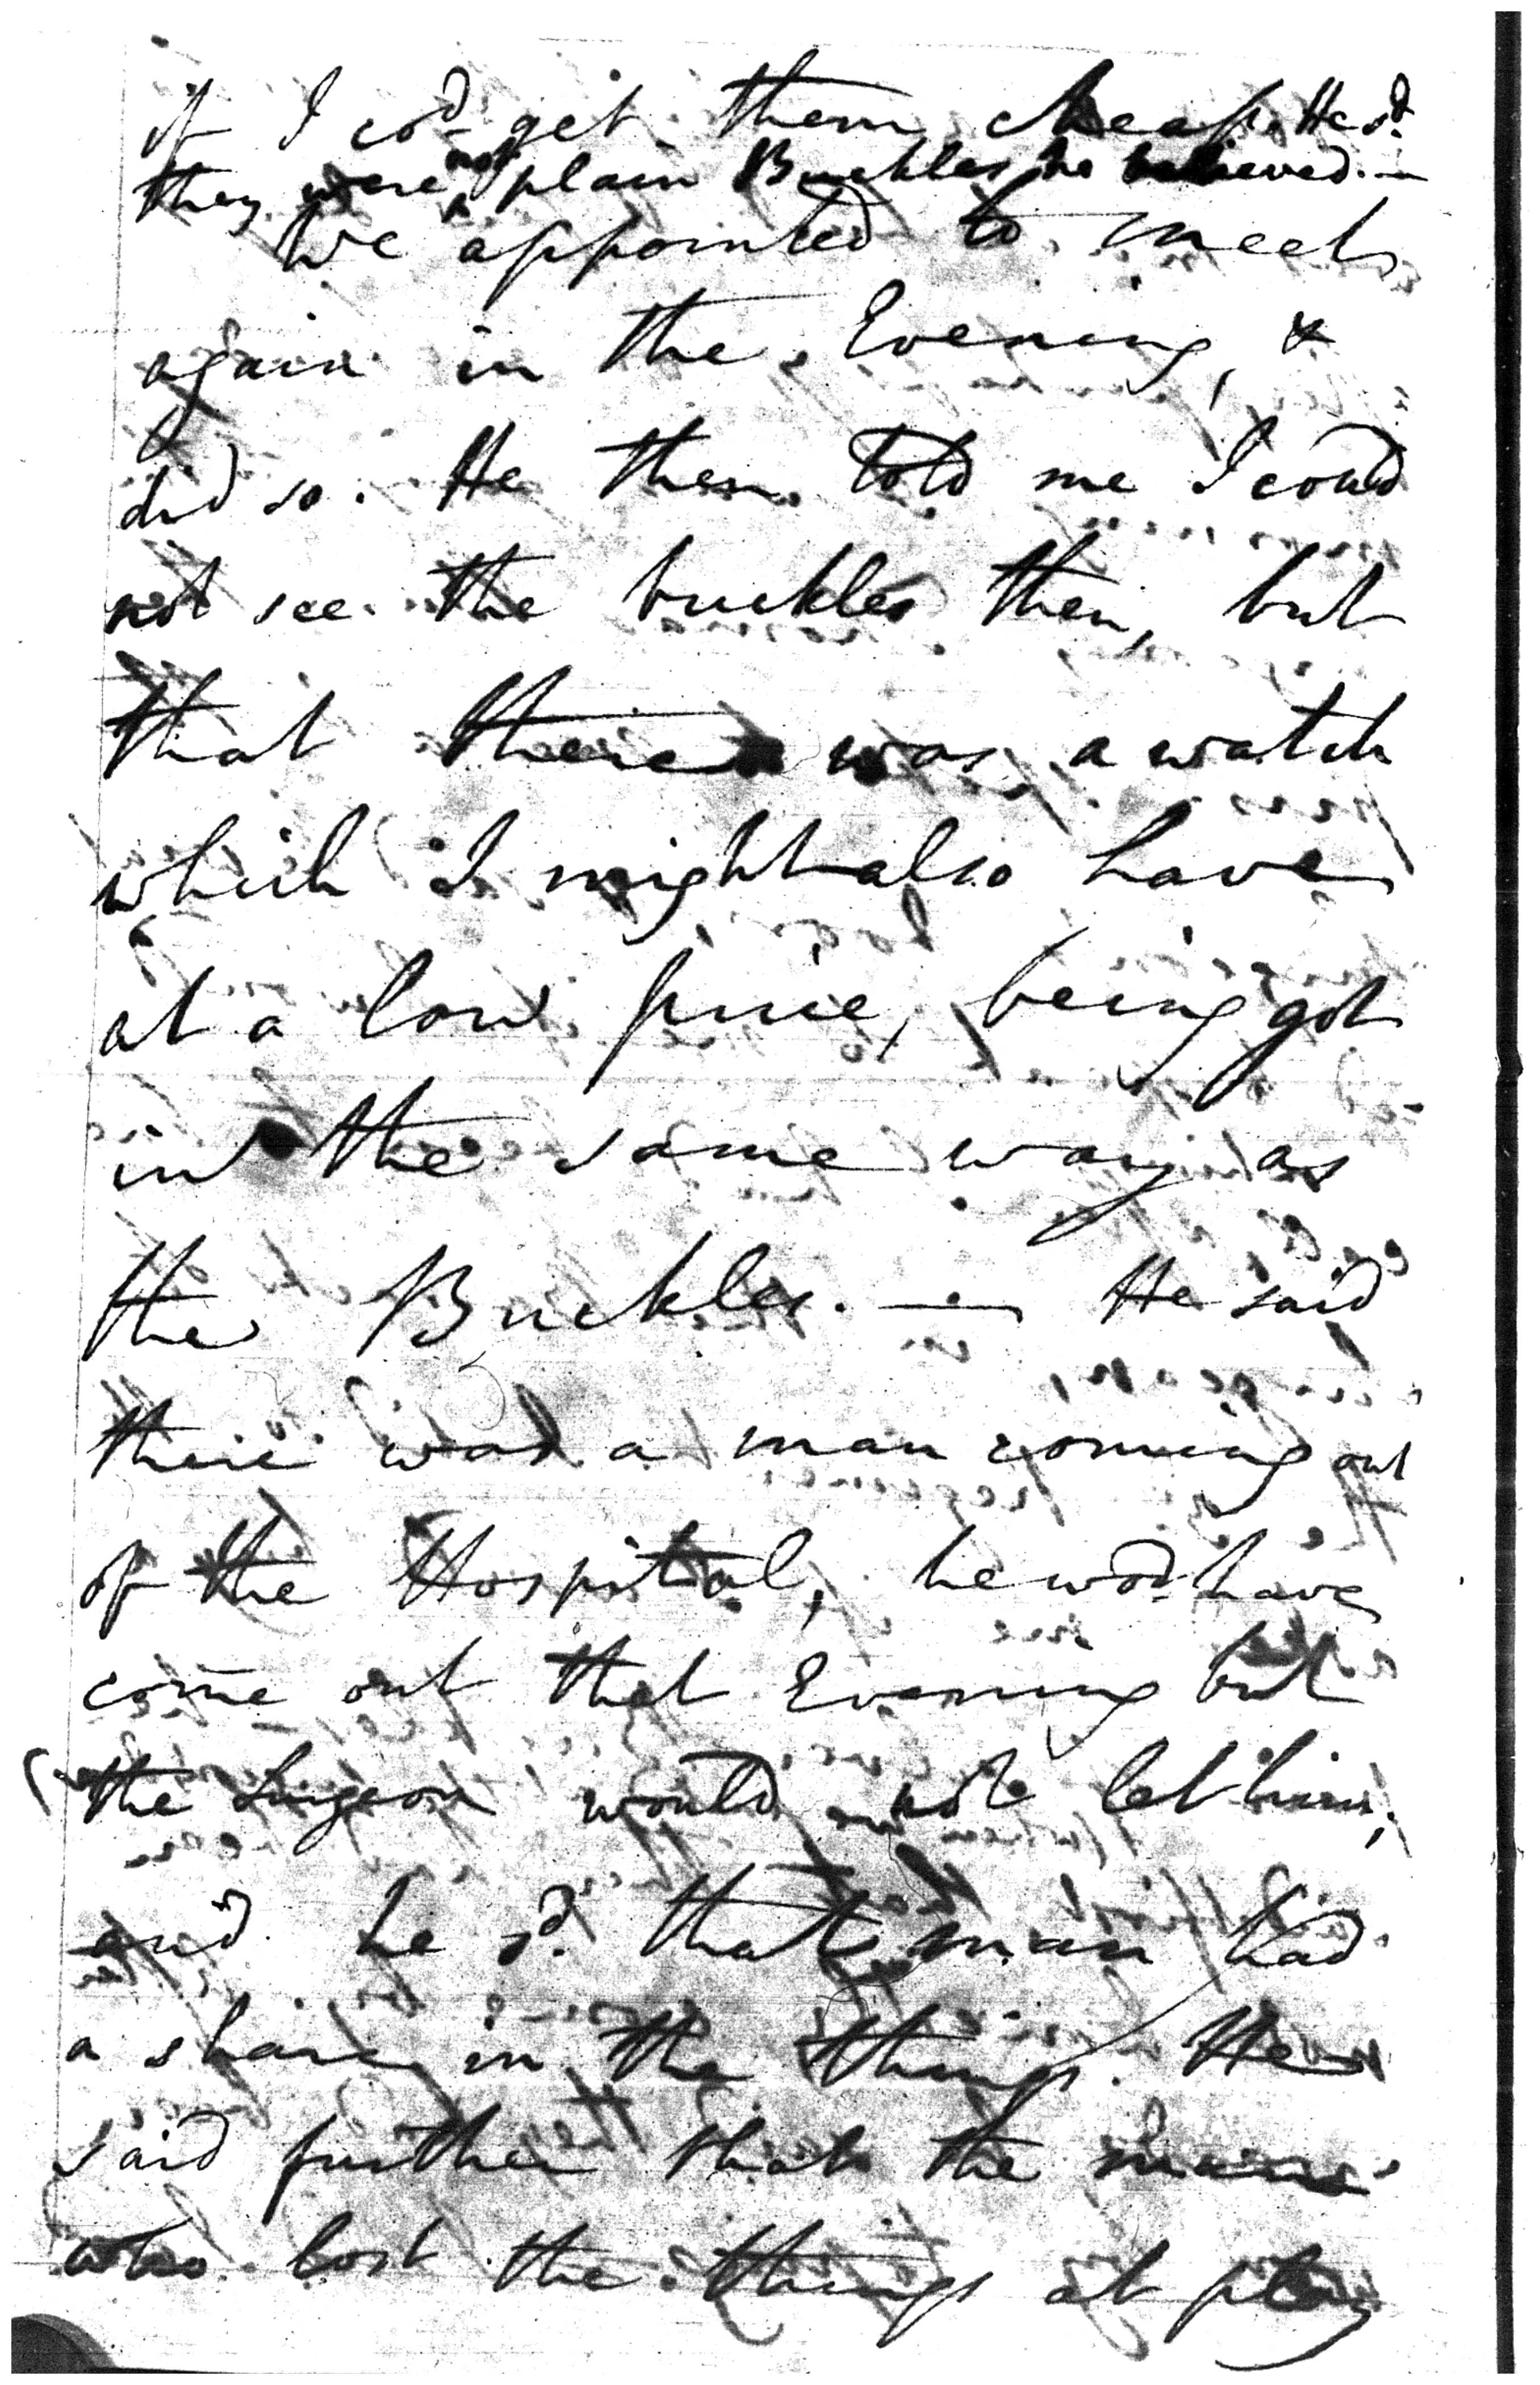 if I cod get them cheap. He sd.
they were not plain Buckles he believed. —
We appointed to meet
again in the Evening, &
did so. He then told me I could
not see the buckles then, but
that there was a watch
which I might also have
at a low price, being got
in the same way as
the Buckles. — He said
there was a man coming out
of the Hospital, he wod have
come out that Evening but
the Surgeon would not let him;
and he sd. that man had
a share in the things. He
said further that the man
who lost the things at play